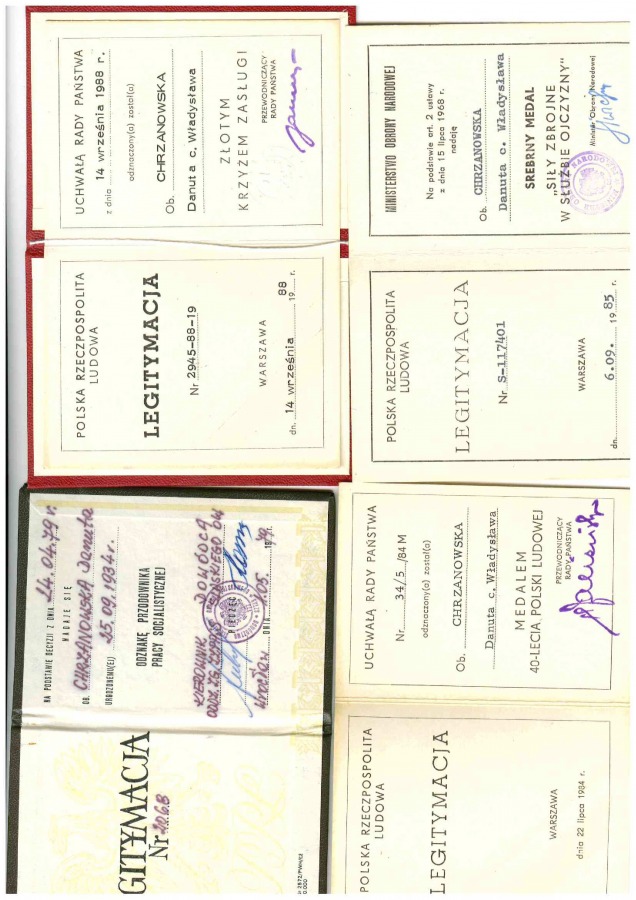 UCHWAŁĄ RADY PAŃSTWA
z dnia 14 września 1988 r.
odznaczony(a) został(a)
Ob. CHRZANOWSKA
Danuta c. Władysława
ZŁOTYM
KRZYŻEM ZASŁUGI
PRZEWODNICZĄCY
RADY PAŃSTWA
POLSKA RZECZPOSPOLITA
LUDOWA
LEGITYMACJA
Nr 2945-88-19
WARSZAWA
dn. 14 września 1988 r.
MINISTERSTWO OBRONY NARODOWEJ
Na podstawie art. 2 ustawy
z dnia 15 lipca 1968 r.
nadaję
Ob. CHRZANOWSKA
Danuta c. Władysława
SREBRNY MEDAL
„SIŁY ZBROJNE
W SŁUŻBIE OJCZYZNY"
Minister Obrony Narodowej
POLSKA RZECZPOSPOLITA
LUDOWA
LEGITYMACJA
Nr S-117401
WARSZAWA
dn. 6.09. 1985 r.
NA PODSTAWIE DECYZJI Z DNIA 24.04.79 r.
NADAJE SIĘ
OB. CHRZANOWSKA Danuta
URODZONEMU(EJ) 25.09.1934 r.
ODZNAKĘ PRZODOWNIKA
PRACY SOCJALISTYCZNEJ
KIEROWNIK DOWÓDCA
PIECZĘĆ
Wrocław DNIA 1979
GITYMACJA
Nr 2068
UCHWAŁĄ RADY PAŃSTWA
Nr 34/5/84 M
odznaczony(a) został(a)
Ob. CHRZANOWSKA
Danuta c. Władysława
MEDALEM
40-LECIA POLSKI LUDOWEJ
PRZEWODNICZĄCY
RADY PAŃSTWA
POLSKA RZECZPOSPOLITA
LUDOWA
LEGITYMACJA
WARSZAWA
dnia 22 lipca 1984 r.